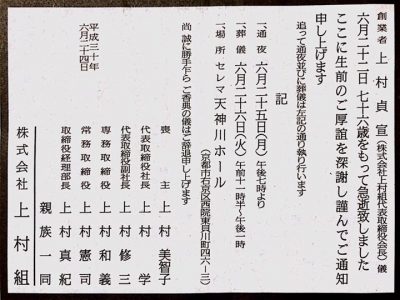 創業者 上村貞宣(株式会社上村組代表取締役会長)儀
六月二十二日 七十六歳をもって急逝致しました
ここに生前のご厚誼を深謝し謹んでご通知
申し上げます
追って通夜並びに葬儀は左記の通り執り行います
記
一、通夜 六月二十五日(月)午後七時より
一、葬儀 六月二十六日(火)午前十一時半~午後一時
一、場所 セレマ天神川ホール
(京都市右京区西院東貝川町四六-三)
尚 誠に勝手乍ら ご香典の儀はご辞退申し上げます
平成三十年
六月二十四日
喪主 上村美智子
代表取締役社長 上村学
代表取締役副社長 上村修三
専務取締役 上村和義
常務取締役 上村憲司
取締役経理部長 上村真紀
親族一同
株式会社 上村組